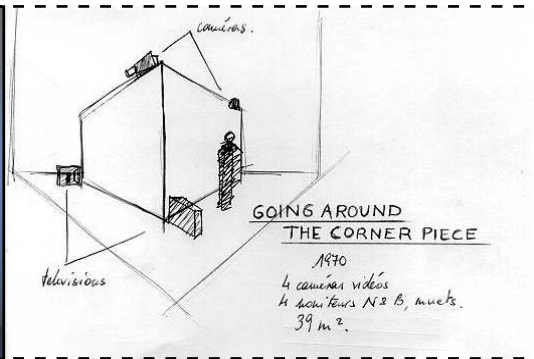 caméras.
télévisions
GOING AROUND
THE CORNER PIECE
1970
4 caméras vidéos
4 moniteurs N & B, muets.
39 m².